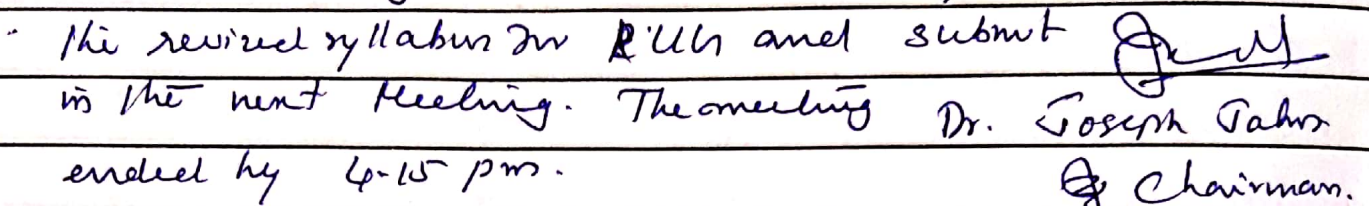 the revised syllabus for and submit
in the next Meeting. The meeting Dr. Joseph John
ended by 4-15 pm. Chairman.